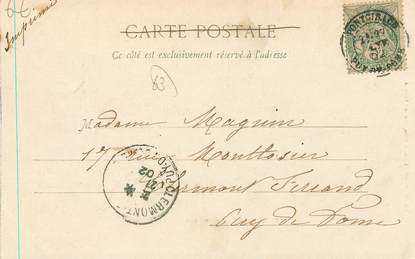 6€
Imprimé
CARTE POSTALE
Ce côté est exclusivement réservé à l'adresse
PONTGIBAUD
PUY-DE-DOME
63
Madame Maguin
17 rue Montlosier
Clermont Ferrand
Puy de Dome
CLERMONT
02